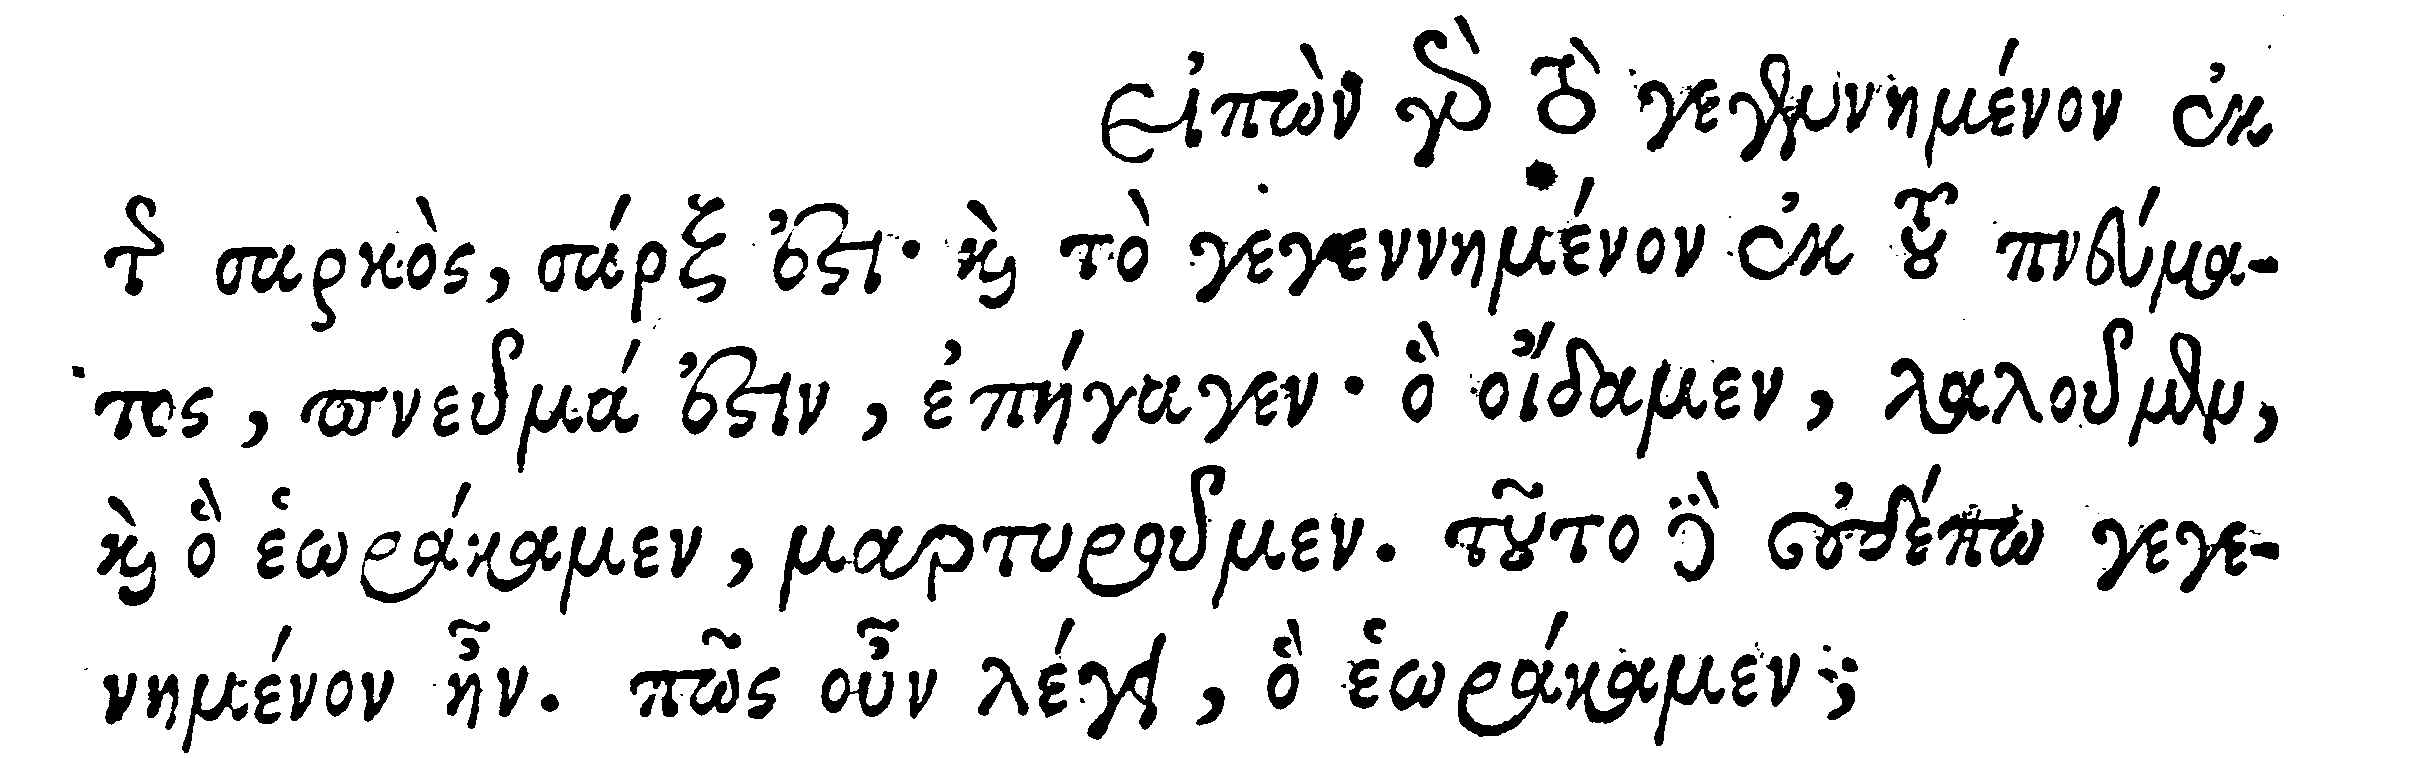 εἰπὼν γὰρ τὸ γεγεννημένον ἐκ
τῆς σαρκὸς, σάρξ ἐστι· καὶ τὸ γεγεννημένον ἐκ τοῦ πνεύμα-
τος, πνεῦμά ἐστιν, ἐπήγαγεν· ὃ οἴδαμεν, λαλοῦμεν,
καὶ ὃ ἑωράκαμεν, μαρτυροῦμεν. τοῦτο δὲ οὐδέπω γεγε-
νημένον ἦν. πῶς οὖν λέγει, ὃ ἑωράκαμεν;